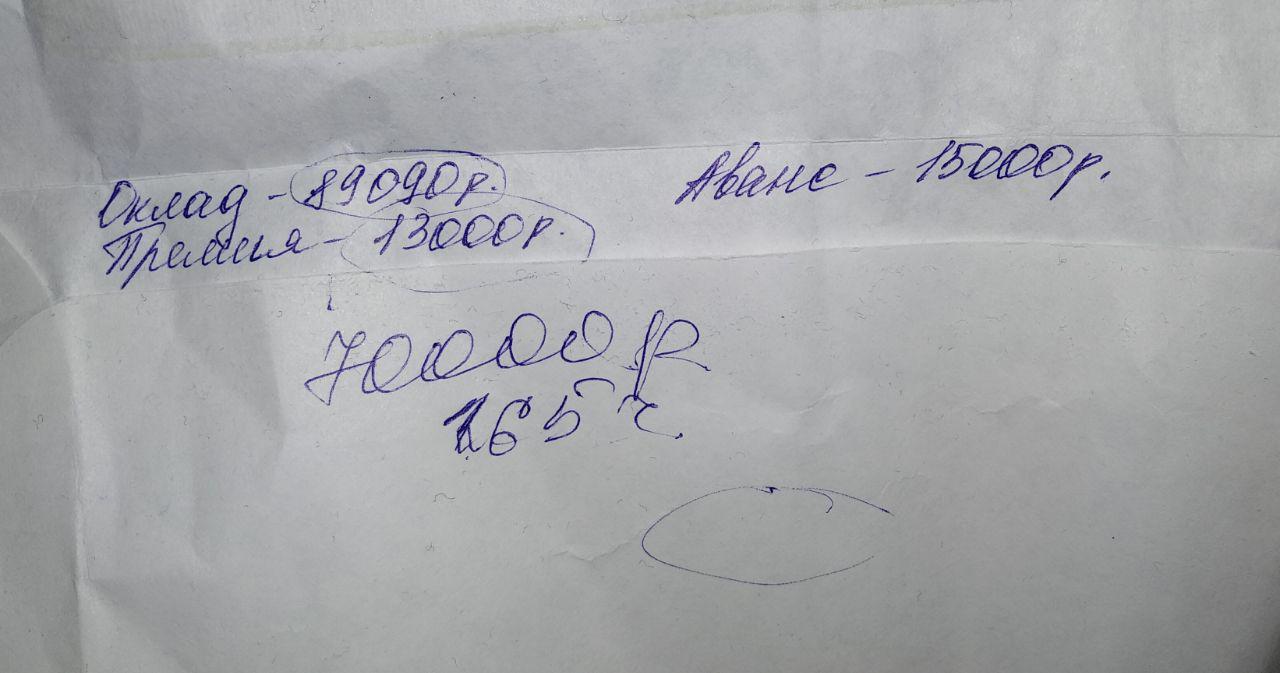 Оклад - 89090р. Аванс - 15000р.
Премия - 13000р.
70000р
165 ч.